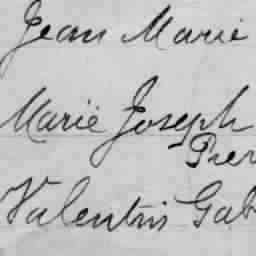 Jean Marie
Marie Joseph
Pier
Valentin Gab